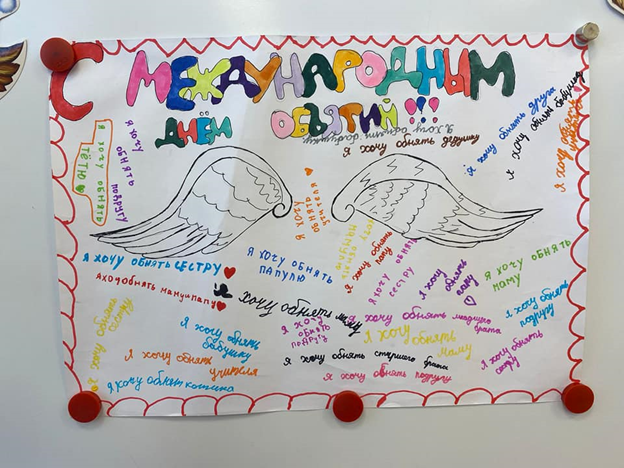 С МЕЖДУНАРОДНЫМ
ДНЁМ ОБЪЯТИЙ!!!
Я хочу обнять бабушку
Я хочу обнять девушку
Я ХОЧУ ОБНЯТЬ ТЁТЮ
Я ХОЧУ ОБНЯТЬ ПОДРУГУ
Я хочу обнять друга
Я хочу обнять бабушку
Я хочу обнять
Я ХОЧУ ОБНЯТЬ СЕСТРУ
Я ХОЧУ ОБНЯТЬ ПАПУЛЮ
Я хочу обнять папу
Я ХОЧУ ОБНЯТЬ СЕСТРУ
Я хочу обнять папу
Я ХОЧУ ОБНЯТЬ МАМУ
Я хочу обнять маму и папу
хочу обнять маму
Я хочу обнять сестру
Я хочу обнять подругу
Я хочу обнять младшего брата
Я хочу обнять подругу
Я хочу обнять бабушку
Я хочу обнять маму
Я хочу обнять учителя
Я хочу обнять старшего брата
Я хочу обнять сестру
Я хочу обнять котика
Я хочу обнять подругу